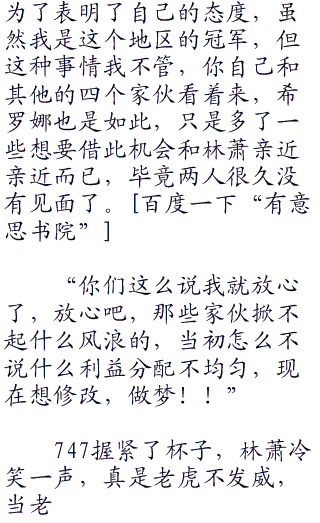 为了表明了自己的态度，虽
然我是这个地区的冠军，但
这种事情我不管，你自己和
其他的四个家伙看着来，希
罗娜也是如此，只是多了一
些想要借此机会和林萧亲近
亲近而已，毕竟两人很久没
有见面了。[百度一下“有意
思书院”]
“你们这么说我就放心
了，放心吧，那些家伙掀不
起什么风浪的，当初怎么不
说什么利益分配不均匀，现
在想修改，做梦！！”
747握紧了杯子，林萧冷
笑一声，真是老虎不发威，
当老